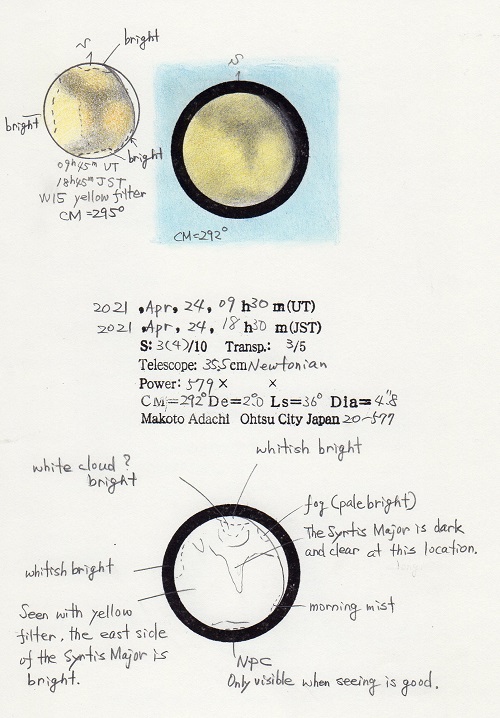 S
bright
bright
bright
09h45m UT
18h45m JST
W15 yellow filter
CM=295°
S
CM=292°
2021, Apr, 24, 09 h30 m(UT)
2021, Apr, 24, 18 h30 m(JST)
S: 3(4)/10 Transp.: 3/5
Telescope: 35.5cm Newtonian
Power: 579 × ×
CM=292° De=2.°0 Ls=36° Dia=4."8
Makoto Adachi Ohtsu City Japan 20-577
whitish bright
white cloud?
bright
fog (pale bright)
The Syrtis Major is dark
and clear at this location.
whitish bright
morning mist
Seen with yellow
filter, the east side
of the Syrtis Major is
bright.
NPC
Only visible when seeing is good.